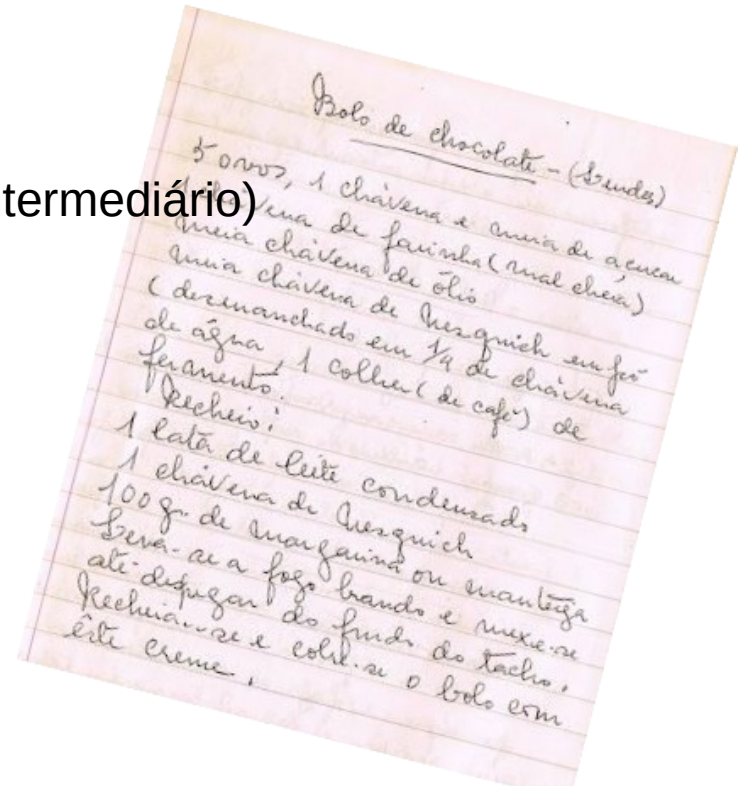 Bolo de chocolate -
termediário)
5 ovos, 1 chávena e meia de açucar
1 chávena de farinha (mal cheia)
meia chávena de ólio
meia chávena de Nesquich em pó
(desmanchado em 1/4 de chávena
de água, 1 colher (de café) de
fermento.
Recheio:
1 lata de leite condensado
1 chávena de Nesquich
100 gr. de margarina ou manteiga
Leva-se a fogo brando e mexe-se
até despegar do fundo do tacho.
Recheia-se e cobre-se o bolo com
êste creme.